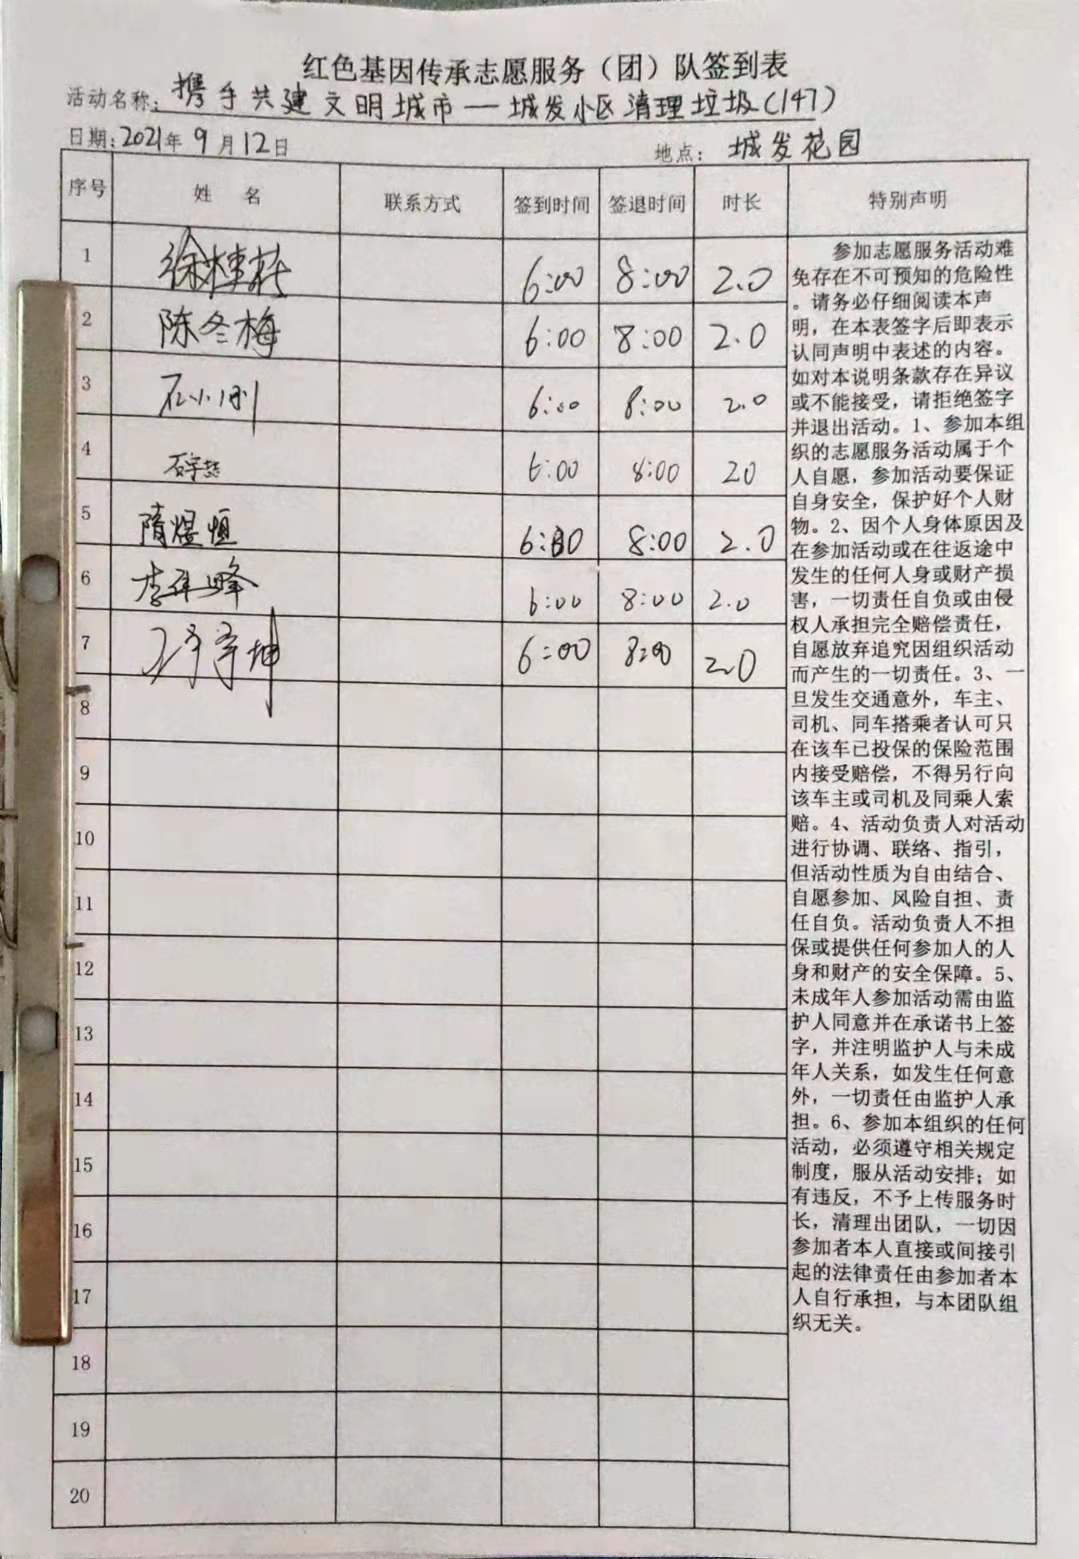 红色基因传承志愿服务（团）队签到表
活动名称：携手共建文明城市—城发小区清理垃圾（147）
日期：2021年9月12日 地点：城发花园
序号 姓 名 联系方式 签到时间 签退时间 时长 特别声明
1 徐桂 6:00 8:00 2.0
2 陈冬梅 6:00 8:00 2.0
3 石小刚 6:00 8:00 2.0
4 石宇 6:00 8:00 20
5 隋煜恒 6:00 8:00 2.0
6 李 峰 6:00 8:00 2.0
7 宇坤 6:00 8:00 2.0
8
9
10
11
12
13
14
15
16
17
18
19
20
参加志愿服务活动难
免存在不可预知的危险性
。请务必仔细阅读本声
明，在本表签字后即表示
认同声明中表述的内容。
如对本说明条款存在异议
或不能接受，请拒绝签字
并退出活动。1、参加本组
织的志愿服务活动属于个
人自愿，参加活动要保证
自身安全，保护好个人财
物。2、因个人身体原因及
在参加活动或在往返途中
发生的任何人身或财产损
害，一切责任自负或由侵
权人承担完全赔偿责任，
自愿放弃追究因组织活动
而产生的一切责任。3、一
旦发生交通意外，车主、
司机、同车搭乘者认可只
在该车已投保的保险范围
内接受赔偿，不得另行向
该车主或司机及同乘人索
赔。4、活动负责人对活动
进行协调、联络、指引，
但活动性质为自由结合、
自愿参加、风险自担、责
任自负。活动负责人不担
保或提供任何参加人的人
身和财产的安全保障。5、
未成年人参加活动需由监
护人同意并在承诺书上签
字，并注明监护人与未成
年人关系，如发生任何意
外，一切责任由监护人承
担。6、参加本组织的任何
活动，必须遵守相关规定
制度，服从活动安排；如
有违反，不予上传服务时
长，清理出团队，一切因
参加者本人直接或间接引
起的法律责任由参加者本
人自行承担，与本团队组
织无关。